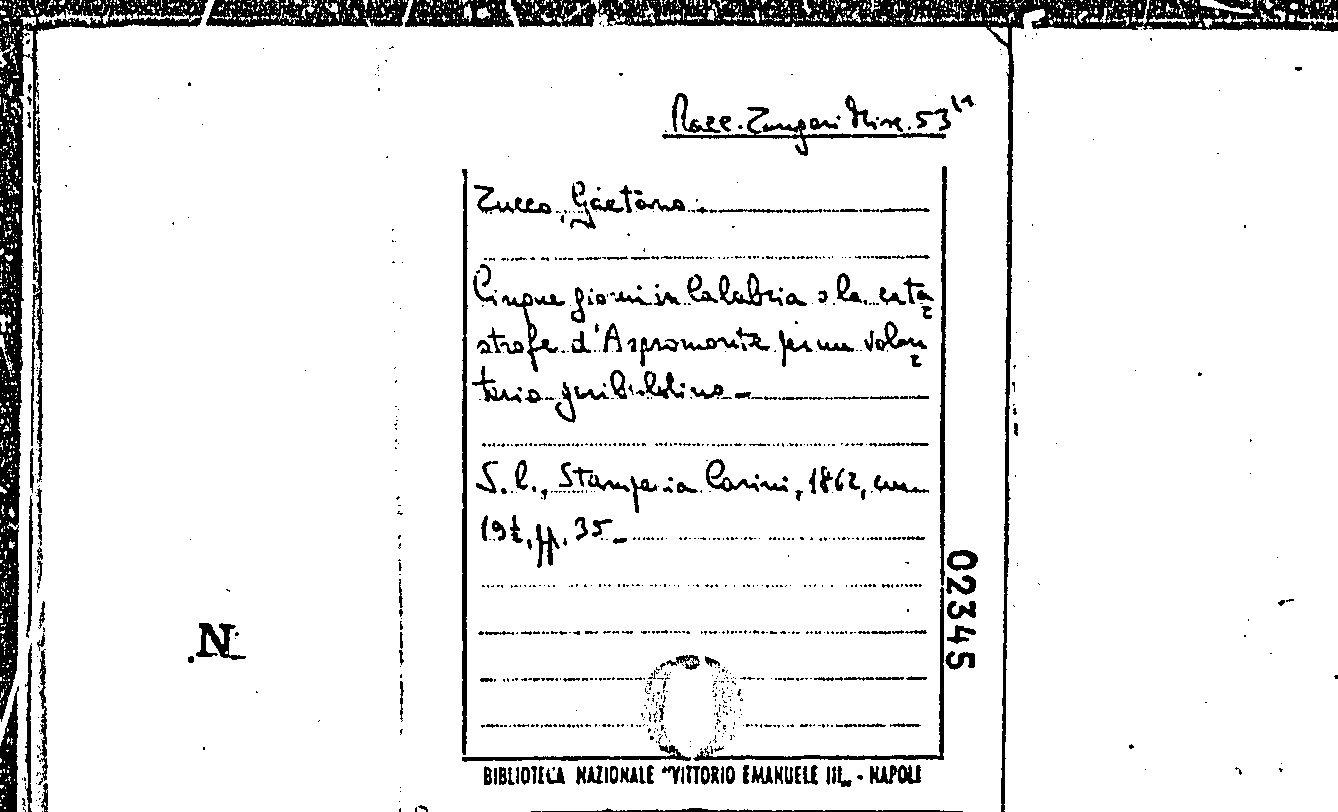 Racc. Zangari Misc. 53
Zucco, Gaetano.
Cinque giorni in Calabria o la cata=
strofe d'Aspromonte per un volon=
tario garibaldino -
S. l., Stamperia Carini, 1862, cm.
19½, pp. 35 -
02345
N
BIBLIOTECA NAZIONALE "VITTORIO EMANUELE III„ - NAPOLI